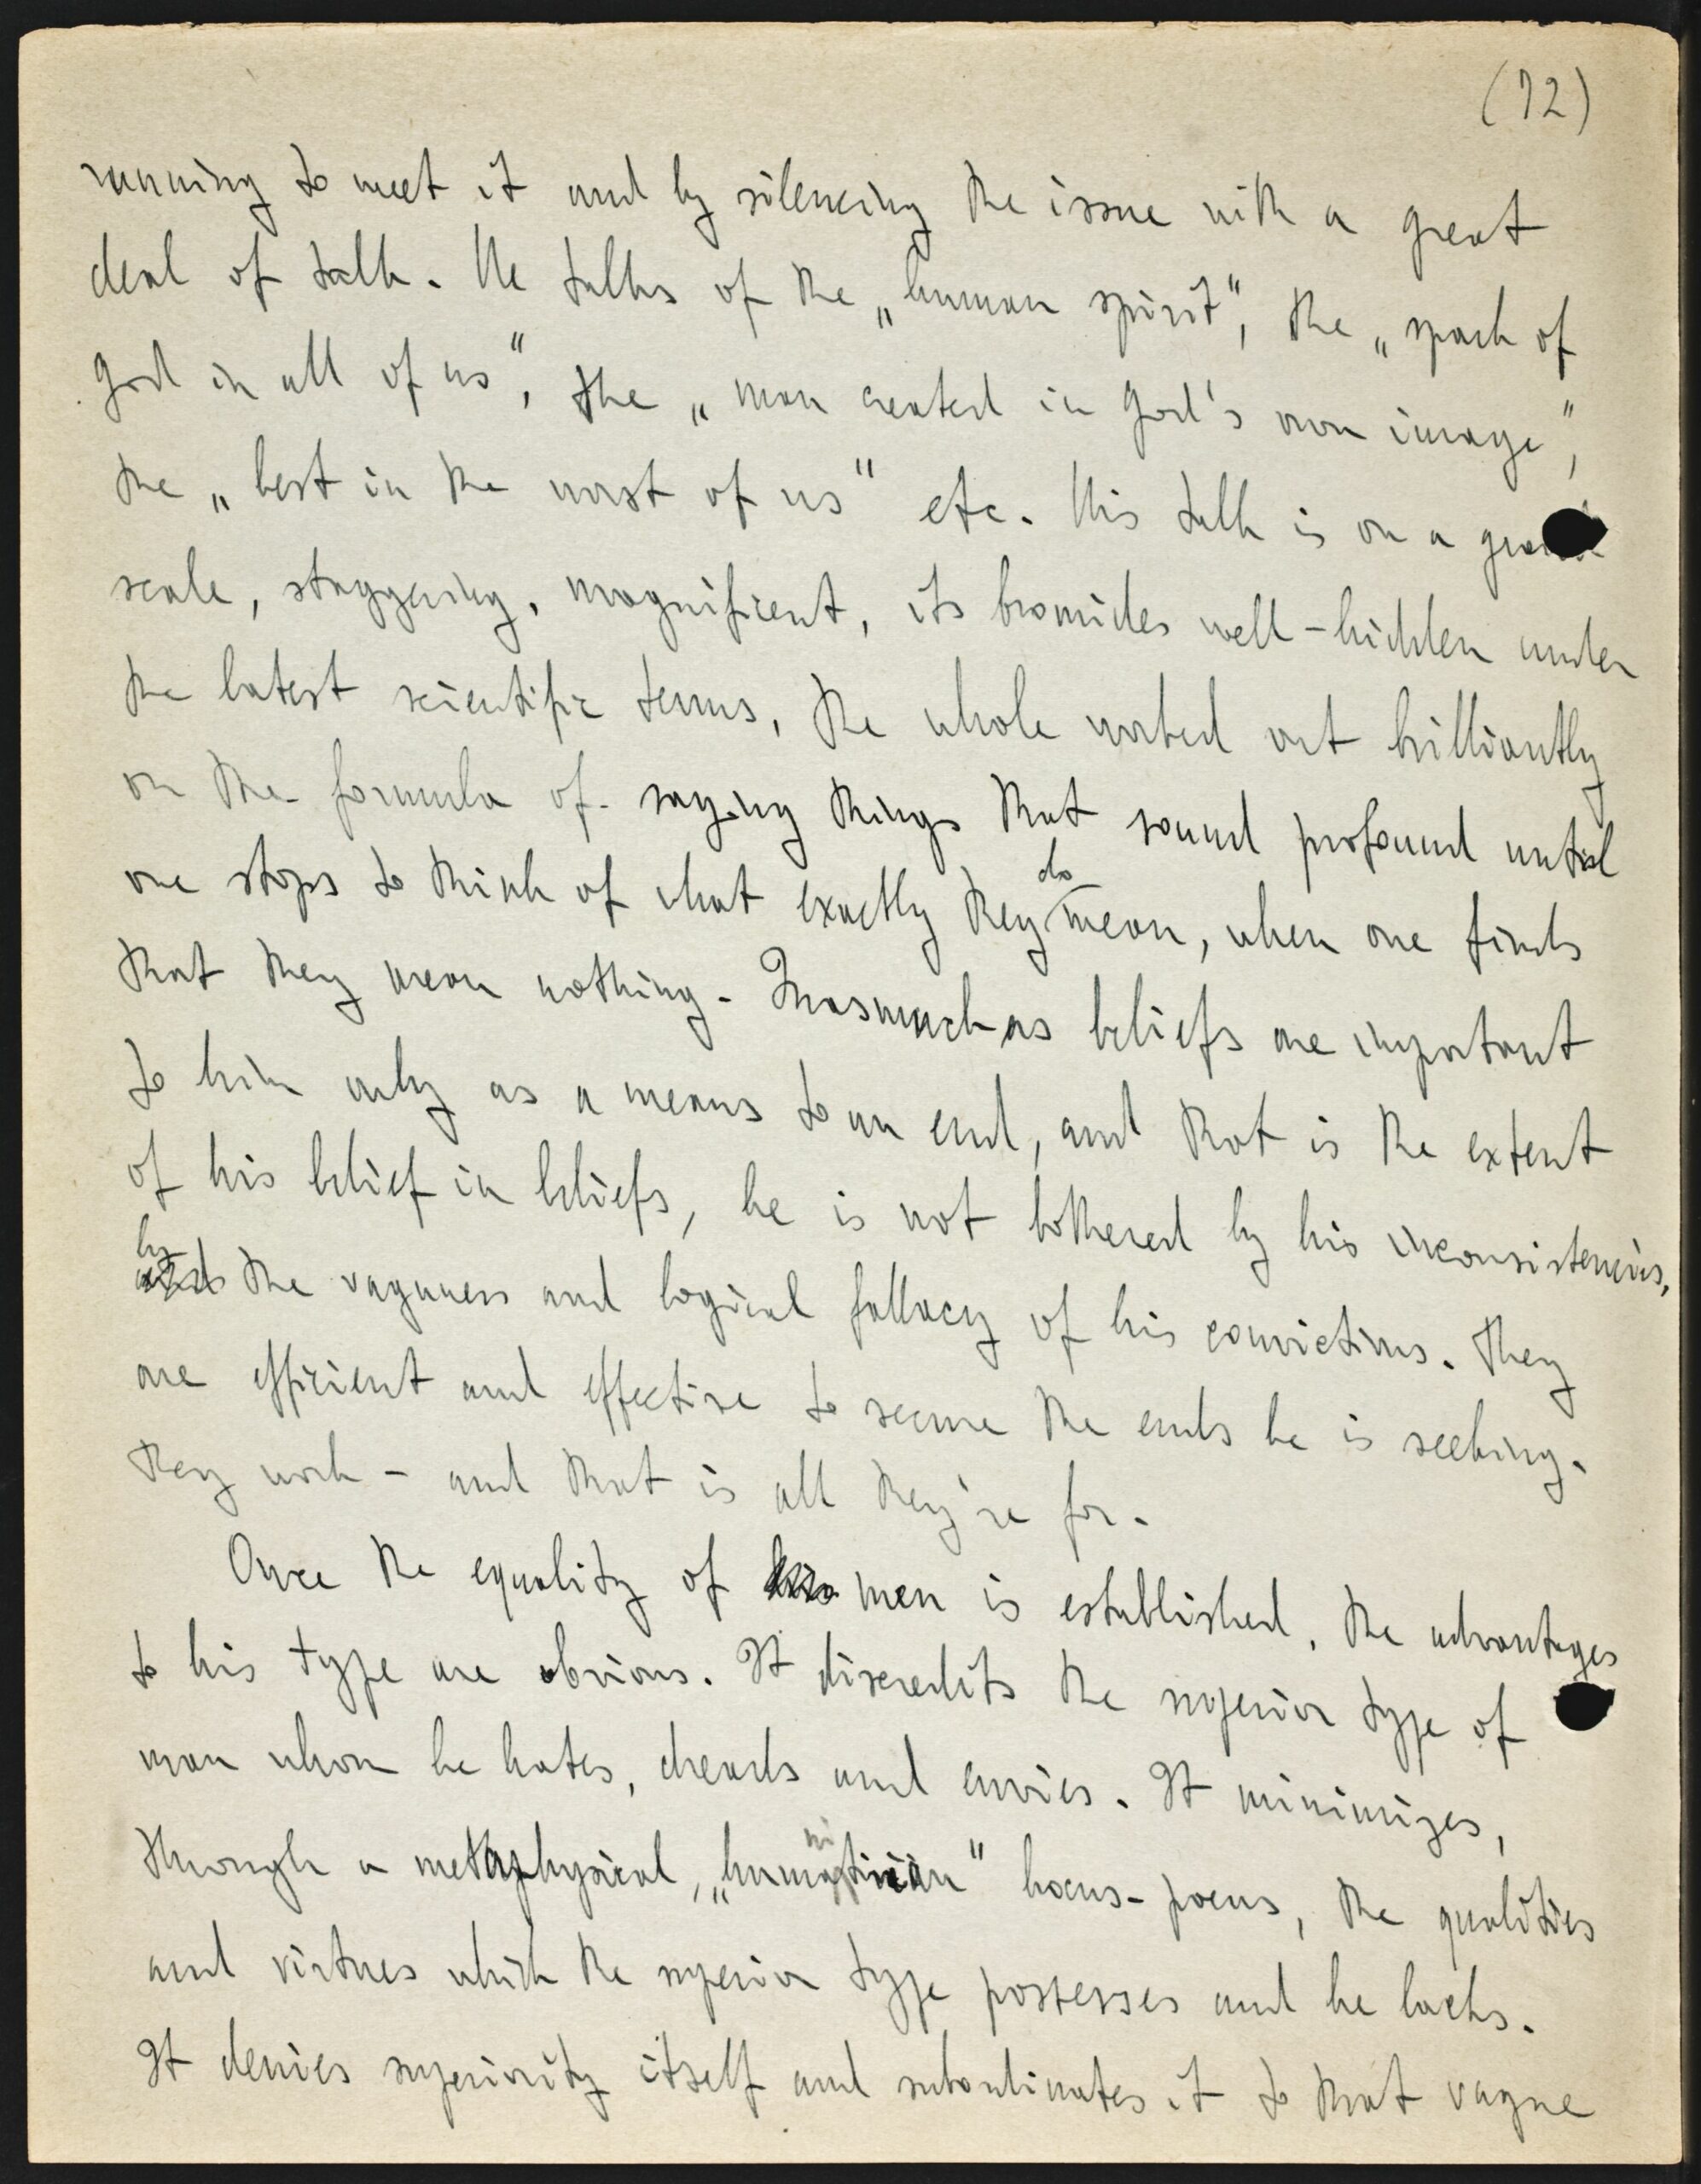 (12)
running to meet it and by silencing the issue with a great
deal of talk. He talks of the „human spirit“, the „spark of
God in all of us“, the „man created in God's own image“,
the „best in the worst of us“ etc. His talk is on a grand
scale, staggering, magnificent, its bromides well-hidden under
the latest scientific terms, the whole worked out brilliantly
on the formula of saying things that sound profound until
one stops to think of what exactly they do mean, when one finds
that they mean nothing. Inasmuch as beliefs are important
to him only as a means to an end, and that is the extent
of his belief in beliefs, he is not bothered by his inconsistencies,
by the vagueness and logical fallacy of his convictions. They
are efficient and effective to secure the ends he is seeking.
They work - and that is all they're for.
Once the equality of men is established, the advantages
to his type are obvious. It discredits the superior type of
man whom he hates, dreads and envies. It minimizes,
through a metaphysical, „humanitarian“ hocus-pocus, the qualities
and virtues which the superior type possesses and he lacks.
It denies superiority itself and subordinates it to that vague